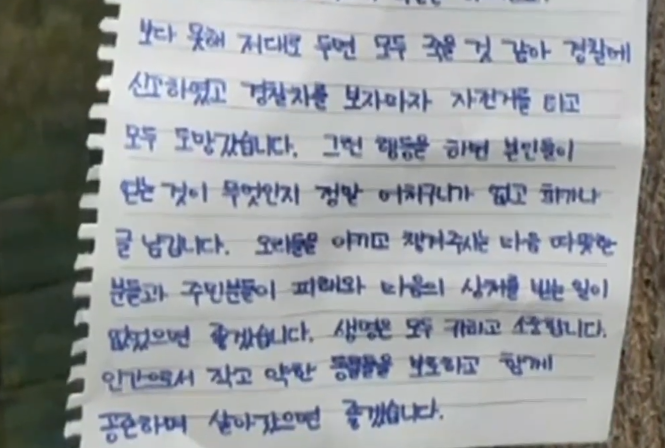 보다 못해 저대로 두면 모두 죽을 것 같아 경찰에
신고하였고 경찰차를 보자마자 자전거를 타고
모두 도망갔습니다. 그런 행동을 하면 본인들이
얻는 것이 무엇인지 정말 어처구니가 없고 화가나
글 남깁니다. 오리들을 아끼고 챙겨주시는 마음 따뜻한
분들과 주민분들이 피해와 마음의 상처를 받는 일이
없었으면 좋겠습니다. 생명은 모두 귀하고 소중합니다.
인간으로서 작고 약한 동물들을 보호하고 함께
공존하며 살아갔으면 좋겠습니다.